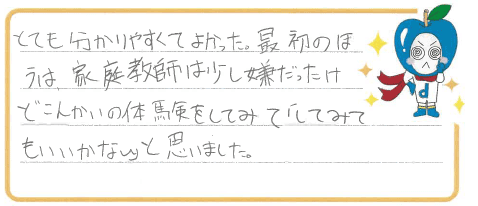 とても分かりやすくてよかった。最初のほ
うは、家庭教師は少し嫌だったけ
どこんかいの体験をしてみて「してみて
もいいかな」と思いました。
d